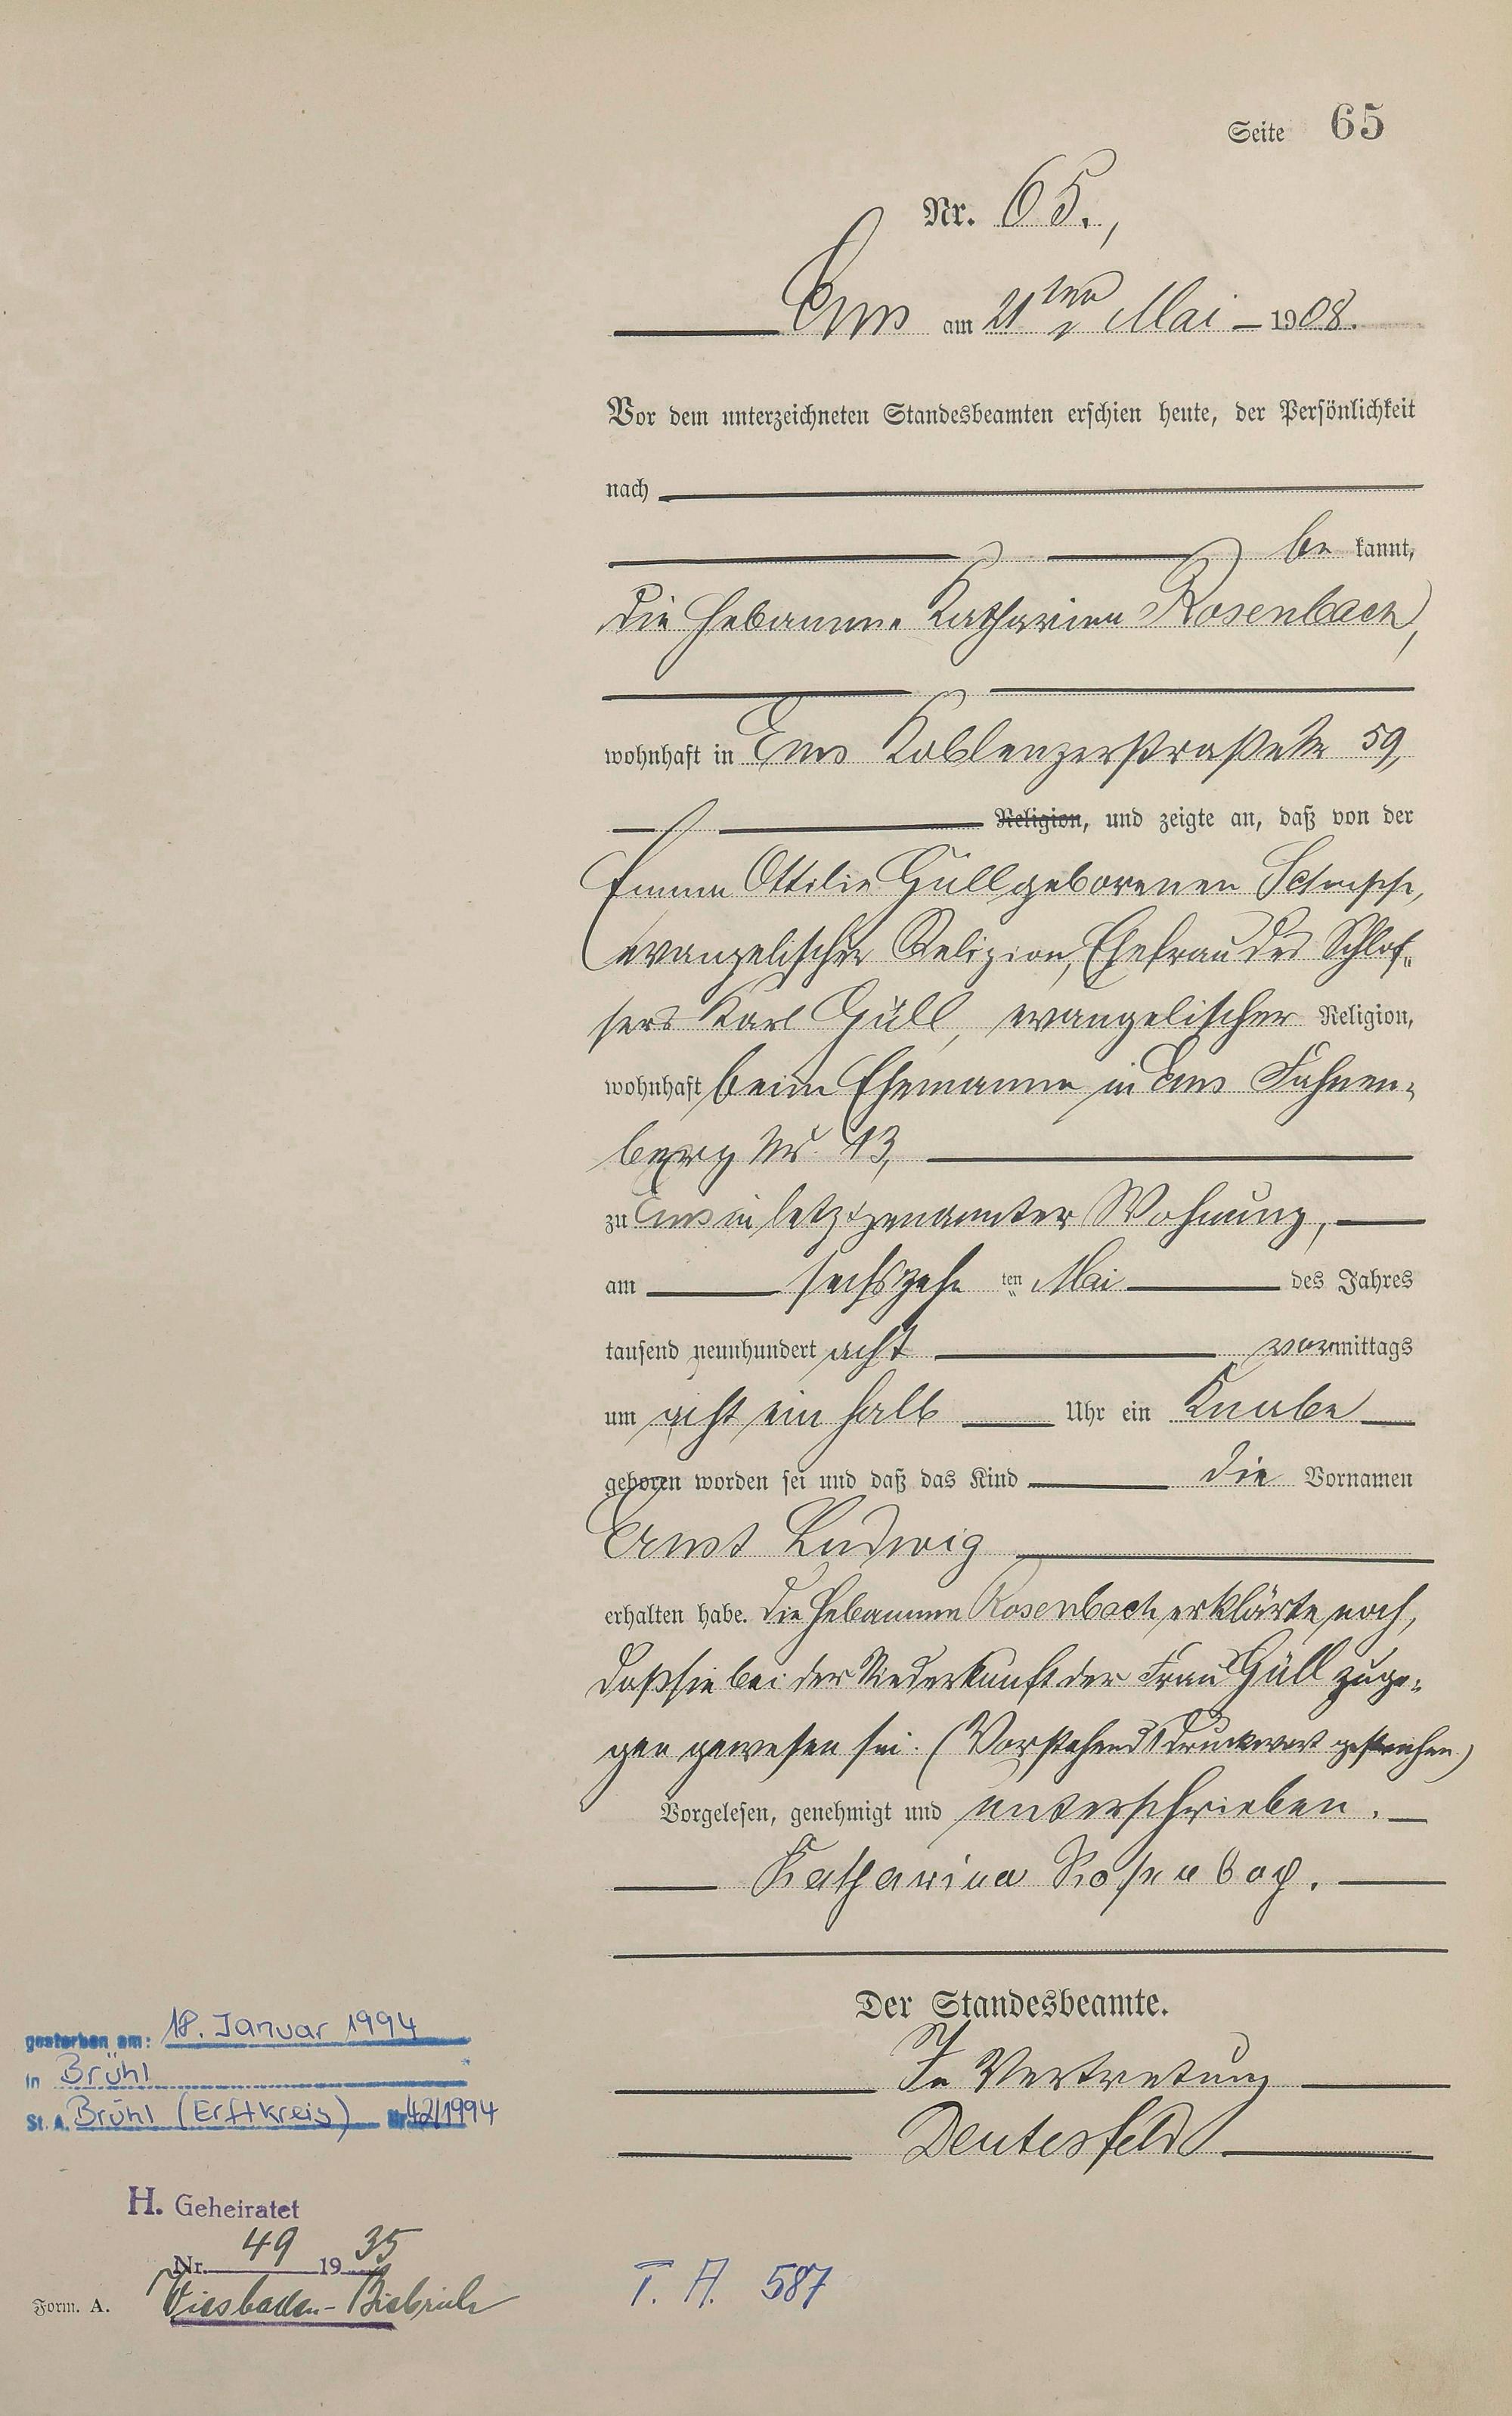 Seite 65
Nr. 65.,
Ems am 21ten Mai 1908.
Vor dem unterzeichneten Standesbeamten erschien heute, der Persönlichkeit
nach
be kannt,
die Hebamme Katharina Rosenbach,
wohnhaft in Ems Koblenzerstraße 59,
Religion, und zeigte an, daß von der
Emma Ottilie Güll geborenen
evangelischer Religion, Ehefrau des Schlos„
sers Karl Güll, evangelischer Religion,
wohnhaft beim Ehemanne in Ems Fahnen„
berg Nr. 13,
zu Ems in letztgenannter Wohnung,
am sechszehn ten Mai des Jahres
tausend neunhundert acht vormittags
um acht ein halb Uhr ein Knabe
geboren worden sei und daß das Kind die Vornamen
Ernst Ludwig
erhalten habe. Die Hebamme Rosenbach erklärte noch,
daß sie bei der Niederkunft der Frau Güll zuge„
gen gewesen sei. (Vorstehend 1 Druckwort gestrichen.)
Vorgelesen, genehmigt und unterschrieben.
Katharina Rosenbach.
Der Standesbeamte.
In Vertretung
Deutesfeld
gestorben am: 18. Januar 1994
in Brühl
St. A. Brühl (Erftkreis) Nr. 42/1994
H. Geheiratet
Nr. 49 1935
Wiesbaden-Biebrich
Form. A.
T. A. 587